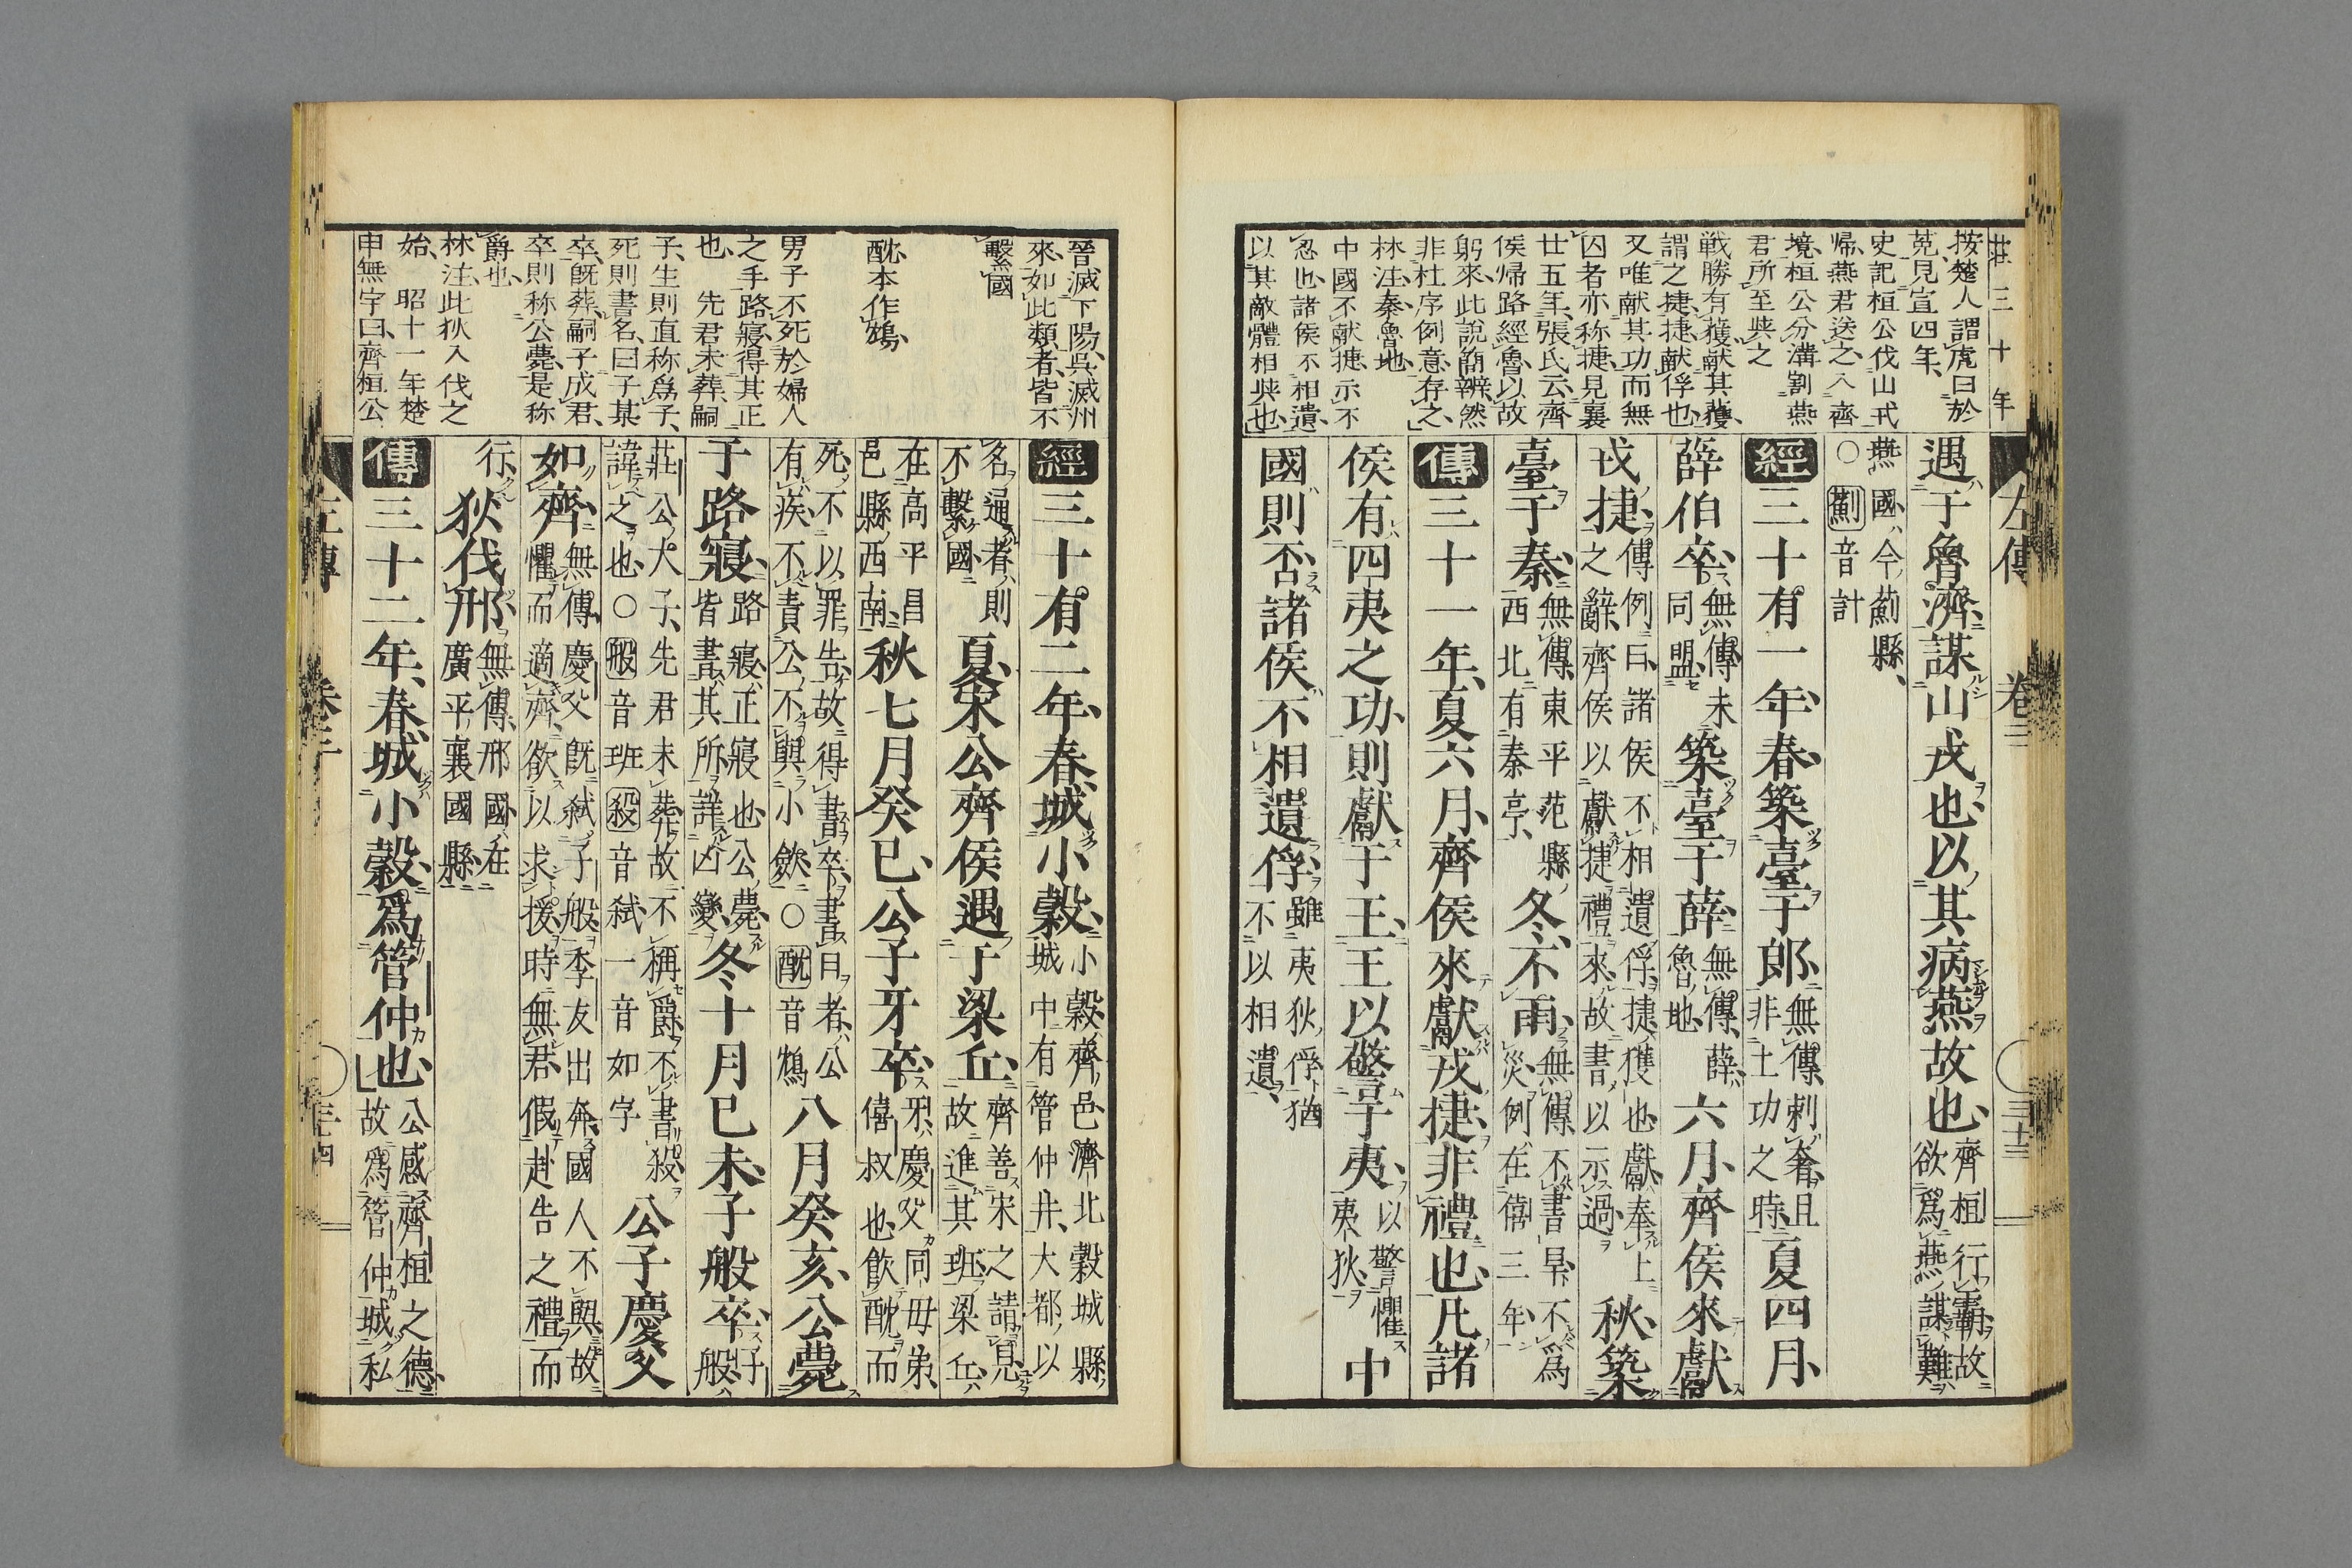 莊三十年
按楚人謂虎曰於
菟見宣四年、
史記桓公伐山戎
帰燕君送之入齊
境桓公分溝割燕
君所至與之
戦勝有獲献其獲、
謂之捷捷献俘也
又唯献其功而無
囚者亦称捷見襄
廿五年張氏云齊
侯帰路經魯以故
躬來此說簡辨然
非杜序例意存之
林注秦魯地
中國不献捷示不
忍也諸侯不相遺
以其敵體相與也
左傳 卷三 三十三
遇于魯濟謀山戎也以其病燕故也齊桓行霸故欲爲燕謀難
燕國今薊縣、○薊音計
經三十有一年春築臺于郎無傳刺奢且非土功之時夏四月
薛伯卒無傳未同盟築臺于薛無傳薛魯地六月齊侯來獻
戎捷傳例曰諸侯不相遺俘捷獲也獻奉上之辭齊侯以獻捷禮來故書以示過秋築
臺于秦無傳東平范縣西北有秦亭冬不雨無傳不書旱不爲災例在僖三年
傳三十一年夏六月齊侯來獻戎捷非禮也凡諸
侯有四夷之功則獻于王王以警于夷以警懼夷狄中
國則否諸侯不相遺俘雖夷狄俘猶不以相遺
晉滅下陽吳滅州
來如此類者皆不
繫國
酖本作鴆
男子不死於婦人
之手路寢得其正
也 先君未葬嗣
子生則直称爲子、
死則書名曰子某
卒既葬嗣子成君、
卒則称公薨是称
爵也
林注此狄入伐之
始 昭十一年楚
申無宇曰齊桓公
經三十有二年春城小穀小穀齊邑濟北穀城縣城中有管仲井大都以
名通者則不繫國夏宋公齊侯遇于梁丘齊善宋之請見故進其班梁丘
在高平昌邑縣西南秋七月癸巳公子牙卒牙慶父同母弟僖叔也飲酖而
死不以罪告故得書卒書日者公有疾不責公不與小斂○酖音鴆八月癸亥公薨
于路寢路寢正寢也公薨皆書其所詳凶變冬十月己未子般卒子般
莊公大子先君未葬故不稱爵不書殺諱之也○般音班殺音弒一音如字公子慶父
如齊無傳慶父既弒子般季友出奔國人不與故懼而適齊欲以求援時無君假赴告之禮而
行狄伐邢無傳邢國在廣平襄國縣
傳三十二年春城小穀爲管仲也公感齊桓之德故爲管仲城私
左傳 卷三 三十四